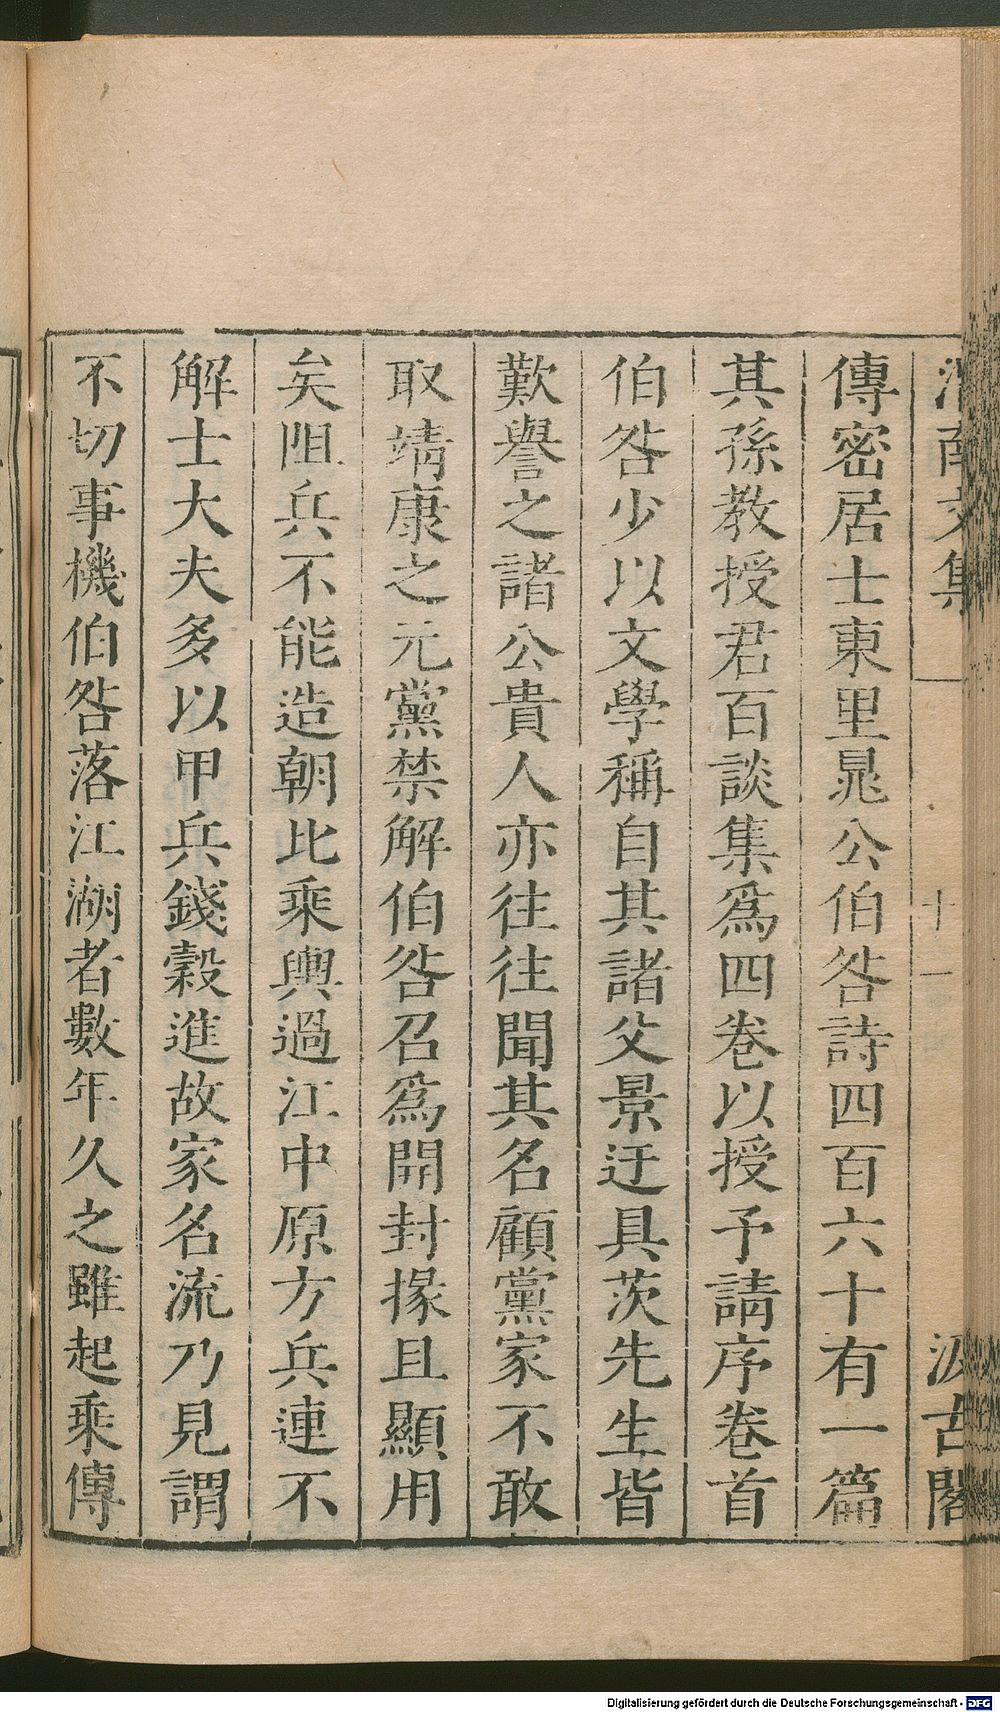 渭南文集
十一
汲古閣
傳密居士東里晁公伯咎詩四百六十有一篇
其孫教授君百談集爲四卷以授予請序卷首
伯咎少以文學稱自其諸父景迂具茨先生皆
歎譽之諸公貴人亦往往聞其名顧黨家不敢
取靖康之元黨禁解伯咎召爲開封掾且顯用
矣阻兵不能造朝比乘輿過江中原方兵連不
解士大夫多以甲兵錢穀進故家名流乃見謂
不切事機伯咎落江湖者數年久之雖起乘傳
Digitalisierung gefördert durch die Deutsche Forschungsgemeinschaft - DFG